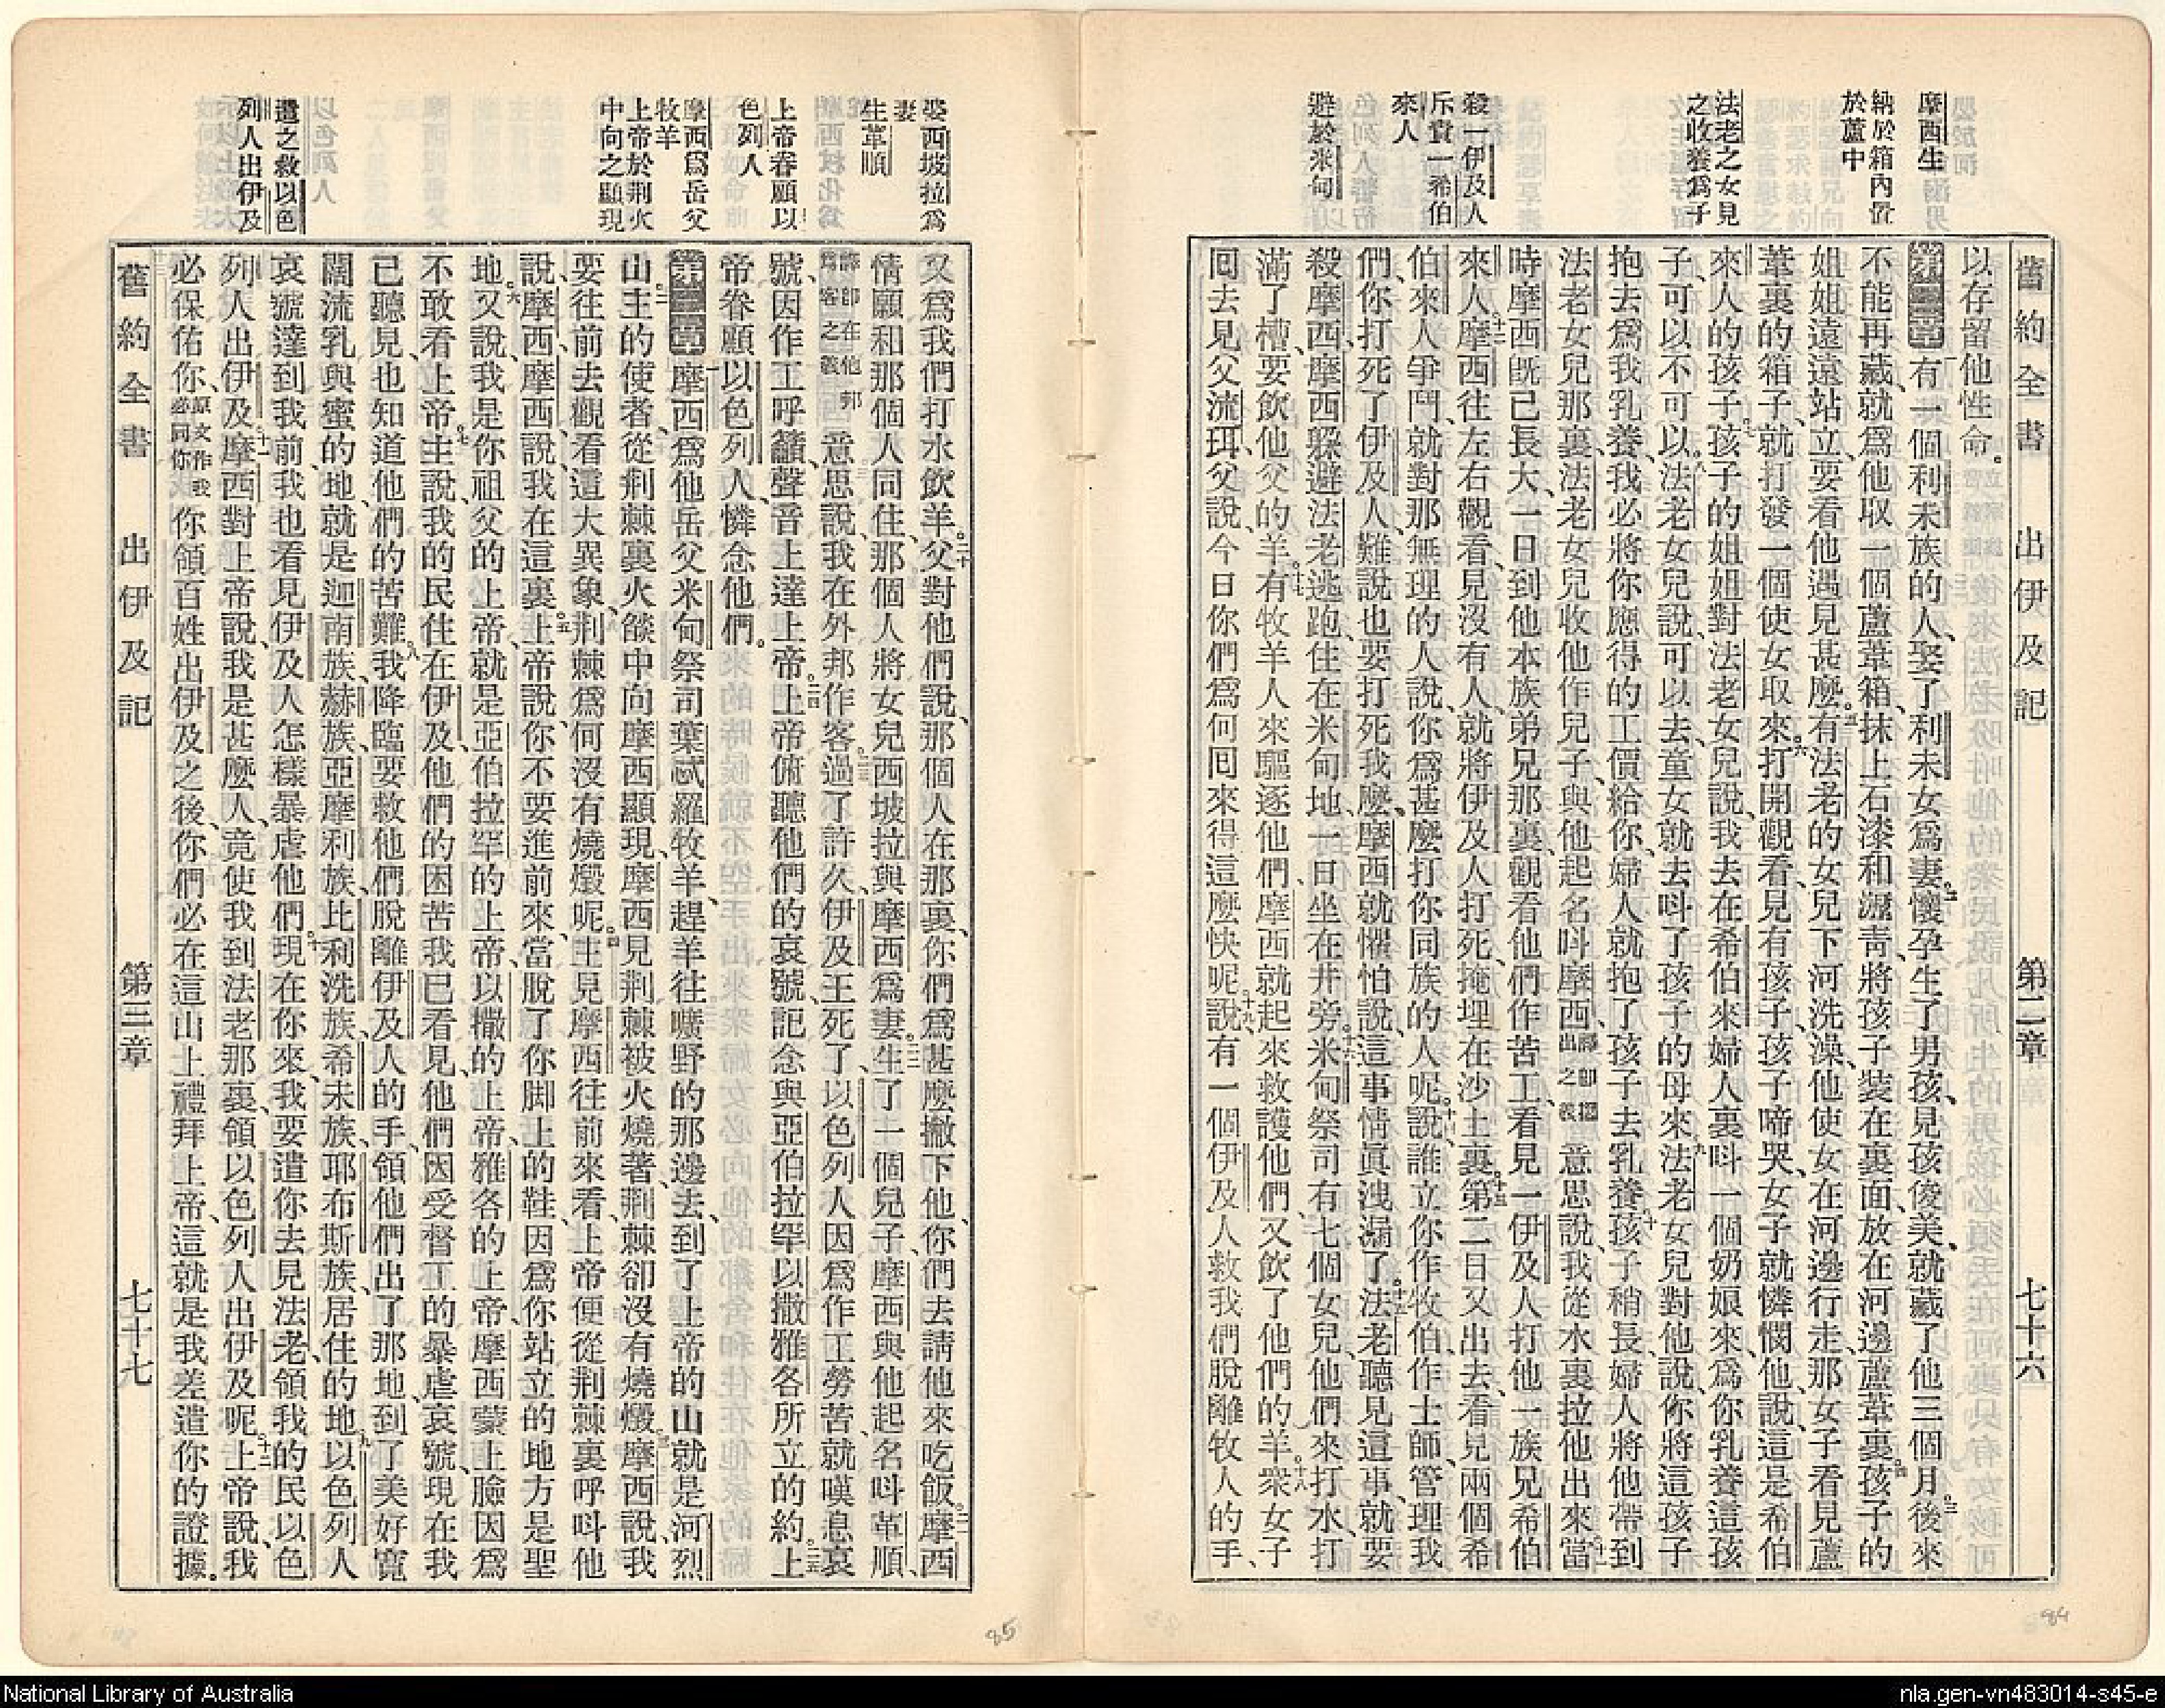 舊約全書 出伊及記 第二章 七十六
摩西生
納於箱內置
於蘆中
法老之女見
之收養爲子
殺一伊及人
斥責一希伯
來人
避於米甸
以存留他性命。
第二章 有一個利未族的人、娶了利未女爲妻。二懷孕生了男孩、見孩俊美、就藏了他三個月。三後來
不能再藏、就爲他取一個蘆葦箱、抹上石漆和瀝靑、將孩子裝在裏面、放在河邊蘆葦裏。四孩子的
姐姐遠遠站立、要看他遇見甚麼。五有法老的女兒下河洗澡、他使女在河邊行走、那女子看見蘆
葦裏的箱子、就打發一個使女取來。六打開觀看、見有孩子、孩子啼哭、女子就憐憫他、說、這是希伯
來人的孩子。七孩子的姐姐對法老女兒說、我去在希伯來婦人裏呌一個奶娘來、爲你乳養這孩
子、可以不可以。八法老女兒說、可以去、童女就去呌了孩子的母來。九法老女兒對他說、你將這孩子
抱去爲我乳養、我必將你應得的工價給你、婦人就抱了孩子去乳養。十孩子稍長、婦人將他帶到
法老女兒那裏、法老女兒收他作兒子、與他起名呌摩西、譯卽援出之義 意思說、我從水裏拉他出來。十一當
時摩西旣已長大、一日到他本族弟兄那裏、觀看他們作苦工、看見一伊及人打他一族兄希伯
來人。十二摩西往左右觀看、見沒有人、就將伊及人打死、掩埋在沙土裏。十三第二日又出去、看見兩個希
伯來人爭鬥、就對那無理的人說、你爲甚麼打你同族的人呢。十四說、誰立你作牧伯、作士師、管理我
們、你打死了伊及人、難說也要打死我麼、摩西就懼怕說、這事情眞洩漏了。十五法老聽見這事、就要
殺摩西、摩西躱避法老、逃跑住在米甸地、一日坐在井旁。十六米甸祭司有七個女兒、他們來打水、打
滿了槽、要飲他父的羊。十七有牧羊人來驅逐他們、摩西就起來救護他們、又飲了他們的羊。十八衆女子
囘去見父流珥、父說、今日你們爲何囘來得這麼快呢。十九說、有一個伊及人救我們脫離牧人的手、
娶西坡拉爲
妻
生革順
上帝眷顧以
色列人
摩西爲岳父
牧羊
上帝於荆火
中向之顯現
遣之救以色
列人出伊及
又爲我們打水飲羊。二十父對他們說、那個人在那裏、你們爲甚麼撇下他、你們去請他來吃飯。二一摩西
情願和那個人同住、那個人將女兒西坡拉與摩西爲妻。二二生了一個兒子、摩西與他起名呌革順、
譯卽在他邦爲客之義 意思說、我在外邦作客。二三過了許久、伊及王死了、以色列人因爲作工勞苦、就嘆息哀
號、因作工呼籲、聲音上達上帝。二四上帝俯聽他們的哀號、記念與亞伯拉罕以撒雅各所立的約。二五上
帝眷顧以色列人、憐念他們。
第三章 一摩西爲他岳父米甸祭司葉忒羅牧羊、趕羊往曠野的那邊去、到了上帝的山、就是河烈
山。二主的使者、從荆棘裏火燄中向摩西顯現、摩西見荆棘被火燒著、荆棘卻沒有燒燬。三摩西說、我
要往前去觀看這大異象、荆棘爲何沒有燒燬呢。四主見摩西往前來看、上帝便從荆棘裏呼呌他
說、摩西、摩西、說、我在這裏。五上帝說、你不要進前來、當脫了你脚上的鞋、因爲你站立的地方是聖
地。六又說、我是你祖父的上帝、就是亞伯拉罕的上帝、以撒的上帝、雅各的上帝、摩西蒙上臉、因爲
不敢看上帝。七主說、我的民住在伊及、他們的困苦我已看見、他們因受督工的暴虐哀號、現在我
已聽見、也知道他們的苦難。八我降臨要救他們脫離伊及人的手、領他們出了那地、到了美好寬
闊流乳與蜜的地、就是迦南族、赫族、亞摩利族、比利洗族、希未族、耶布斯族、居住的地。九以色列人
哀號達到我前、我也看見伊及人怎樣暴虐他們。十現在你來、我要遣你去見法老、領我的民以色
列人出伊及。十一摩西對上帝說、我是甚麼人、竟使我到法老那裏、領以色列人出伊及呢。十二上帝說、我
必保佑你、原文作我必同你 你領百姓出伊及之後、你們必在這山上禮拜上帝、這就是我差遣你的證據。
舊約全書 出伊及記 第三章 七十七
85
84
National Library of Australia
nla.gen-vn483014-s45-e